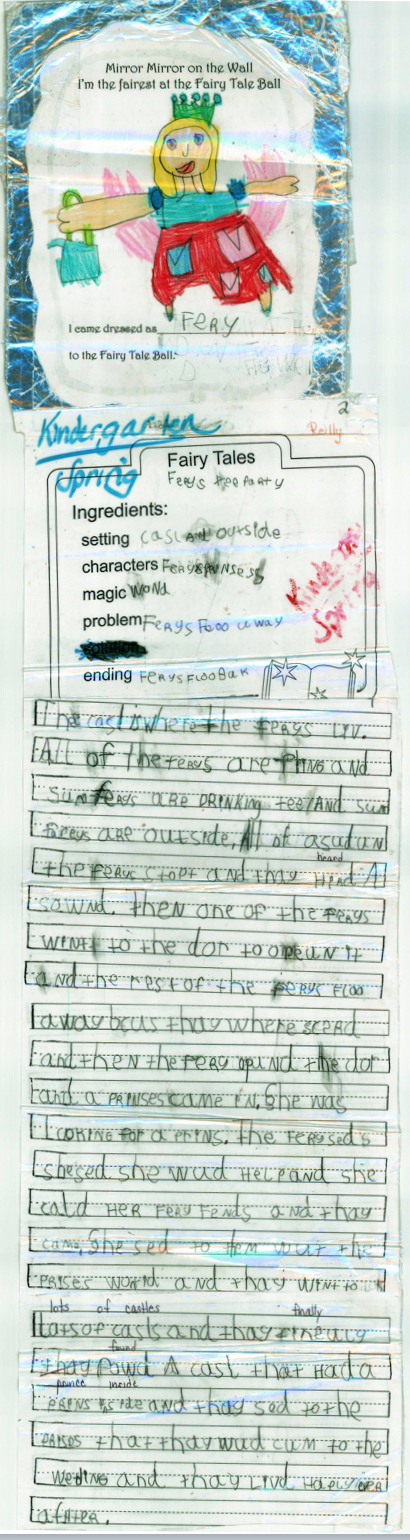 Mirror Mirror on the Wall
I'm the fairest at the Fairy Tale Ball
I came dressed as Fery
to the Fairy Tale Ball.
2
Kindergarten
Reilly
Spring
Fairy Tales
Ferys tee party
Ingredients:
setting casl and outside
characters Ferys prinsess
magic wond
problem Ferys Floo away
ending Ferys Floo Bak
The casl is where the ferys Liv.
All of the ferys are and
sum ferys are DRINKING tee AND sum
ferys are outside. All of a sudun
heard
the ferys stopt and thay Herd A
sownd. Then one of the ferys
wint to the dor to opeun it
and the rest of the ferys Floo
away bcus thay where scerd
and then the fery opund the dor
and a prinses came in. She was
Looking for a prins. The fery sed
she sed she wud HELP and she
cald HER Fery Fends and thay
came. She sed to them wut the
prises world and thay wint to
lots of castles finally
Lots of casls and thay fineuly
found
thay fowd A casl that Had a
prince inside
prins inside and thay sed to the
prises that thay wud cum to the
weding and thay Livd Haply ever
after.